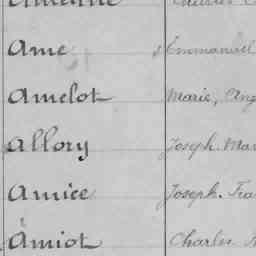 Ame Emmanuel
Amelot Marie, Ang
Allory Joseph Mar
Amice Joseph Fra
Amiot Charles